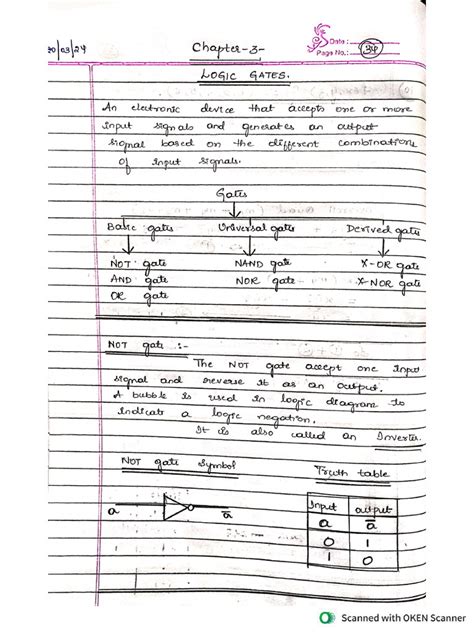 20/03/24
Chapter-3-
Date :
Page No.: 34
LOGIC GATES.
An electronic device that accepts one or more
input signals and generates an output
signal based on the different combinations
of input signals.
Gates
Basic gates Universal gates Derived gates
NOT gate NAND gate X-OR gate
AND gate NOR gate X-NOR gate
OR gate
NOT gate :-
The NOT gate accept one input
signal and reverse it as an output.
A bubble is used in logic diagram to
indicate a logic negation.
It is also called an Inverter.
NOT gate Symbol Truth table
Input output
a a̅
0 1
1 0
a a̅
Scanned with OKEN Scanner